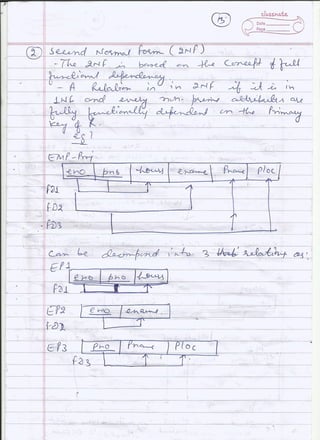 classmate
Date
Page
13
② Second Normal form (2NF)
- The 2NF is based on the Concept of full
functional dependency
- A Relation is in 2NF if it is in
1NF and every non-prime attributes are
fully functionally dependent on the Primary
key of R.
Eg:
EMP-Proj
eno pno hours ename Pname Ploc
FD1
FD2
FD3
Can be decomposed into 3 relations as:
EP1
eno pno hours
FD1
EP2 eno ename
FD2
EP3 pno Pname Ploc
FD3